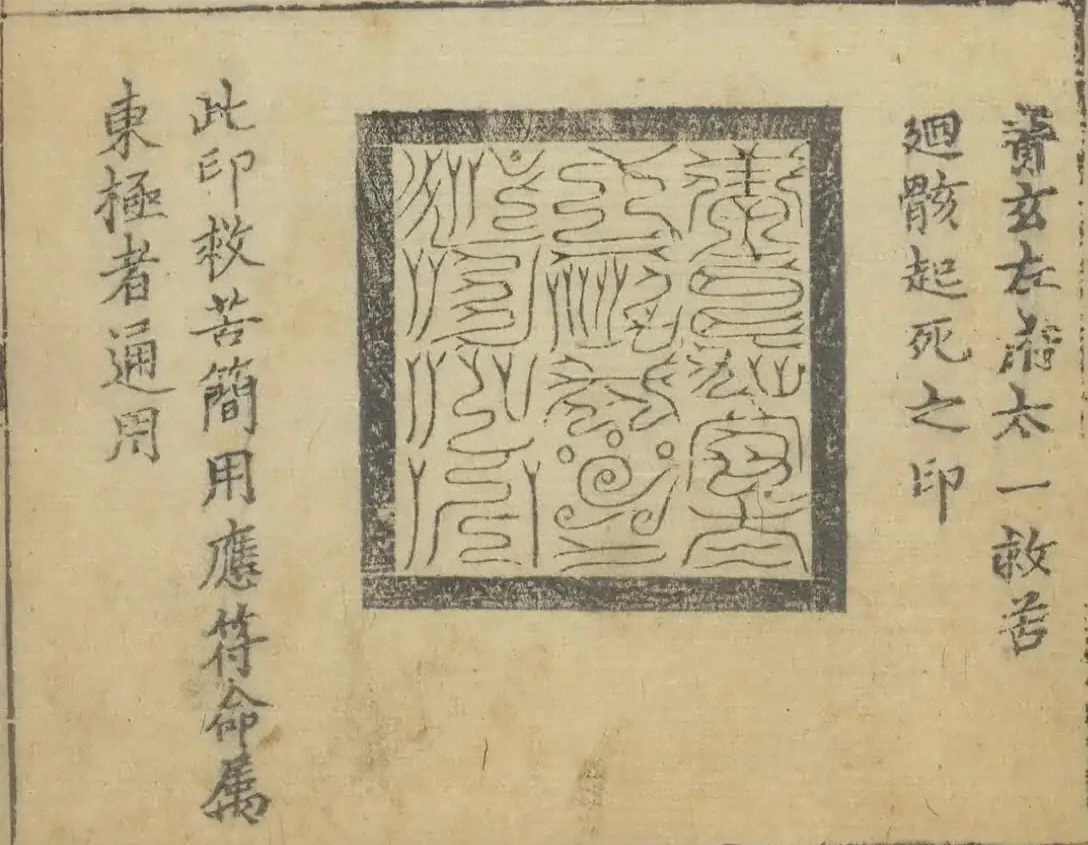 寶玄左府太一救苦
廻骸起死之印
此印救苦簡用應符命属
東極者通用